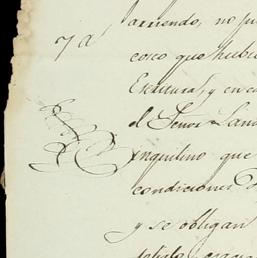 arriendo, no pu
7ª
coro que hubie
Escritura, y en c
el Señor
Inquilino que
condiciones
y se obligan